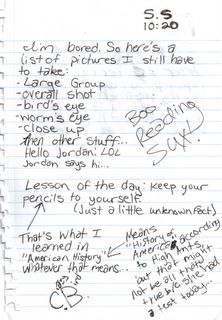 S.S
10:20
I'm bored. So here's a
list of pictures I still have
to take:
-Large Group
-overall shot
-bird's eye
-worm's eye
-close up
then other stuff...
Hello Jordan! LOL
Jordan says hi...
Boo
Reading
Sux!
Lesson of the day: keep your
pencils to yourself.
(Just a little unknown fact)
That's what I
learned in
"American History"
whatever that means...
Means
"History of
America" according
to
but that might
not be all that
true b/c she had
a test today...